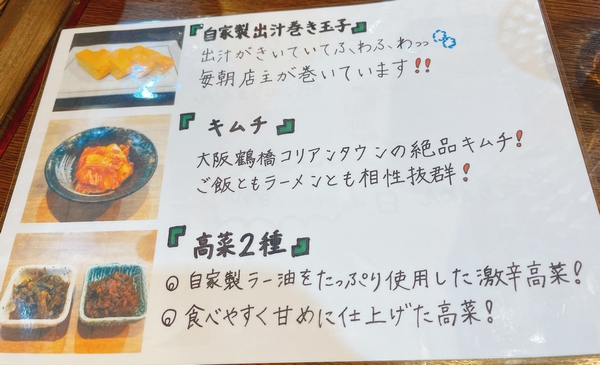 『自家製出汁巻き玉子』
出汁がきいていてふ、わふ、わっっ
毎朝店主が巻いています!!
『キムチ』
大阪鶴橋コリアンタウンの絶品キムチ!
ご飯ともラーメンとも相性抜群!
『高菜2種』
◎ 自家製ラー油をたっぷり使用した激辛高菜!
◎ 食べやすく甘めに仕上げた高菜!